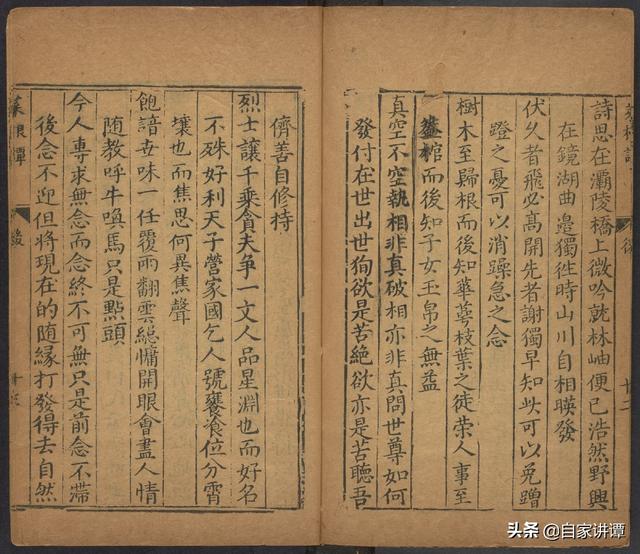 詩思在灞陵橋上微吟就林岫便已浩然野興
在鏡湖曲邊獨徃時山川自相暎發
伏久者飛必高開先者謝獨早知此可以免蹭
蹬之憂可以消躁急之念
樹木至歸根而後知華萼枝葉之徒荣人事至
蓋棺而後知子女玉帛之無益
真空不空執相非真破相亦非真問世尊如何
發付在世出世狥欲是苦絶欲亦是苦聽吾
十二
儕善自修持
烈士讓千乘貪夫争一文人品星淵也而好名
不殊好利天子營家國乞人號饔飱位分霄
壤也而焦思何異焦聲
飽諳世味一任覆雨翻雲總慵開眼會盡人情
随教呼牛喚馬只是㸃頭
今人專求無念而念終不可無只是前念不滯
後念不迎但将現在的随緣打發得去自然
菜根譚
後
头条 @自家讲谭